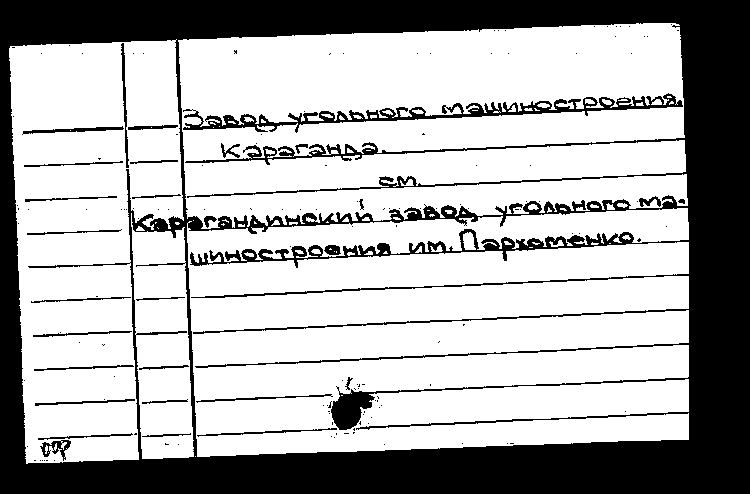 Завод угольного машиностроения.
Караганда.
см.
Карагандинский завод угольного ма-
шиностроения им. Пархоменко.